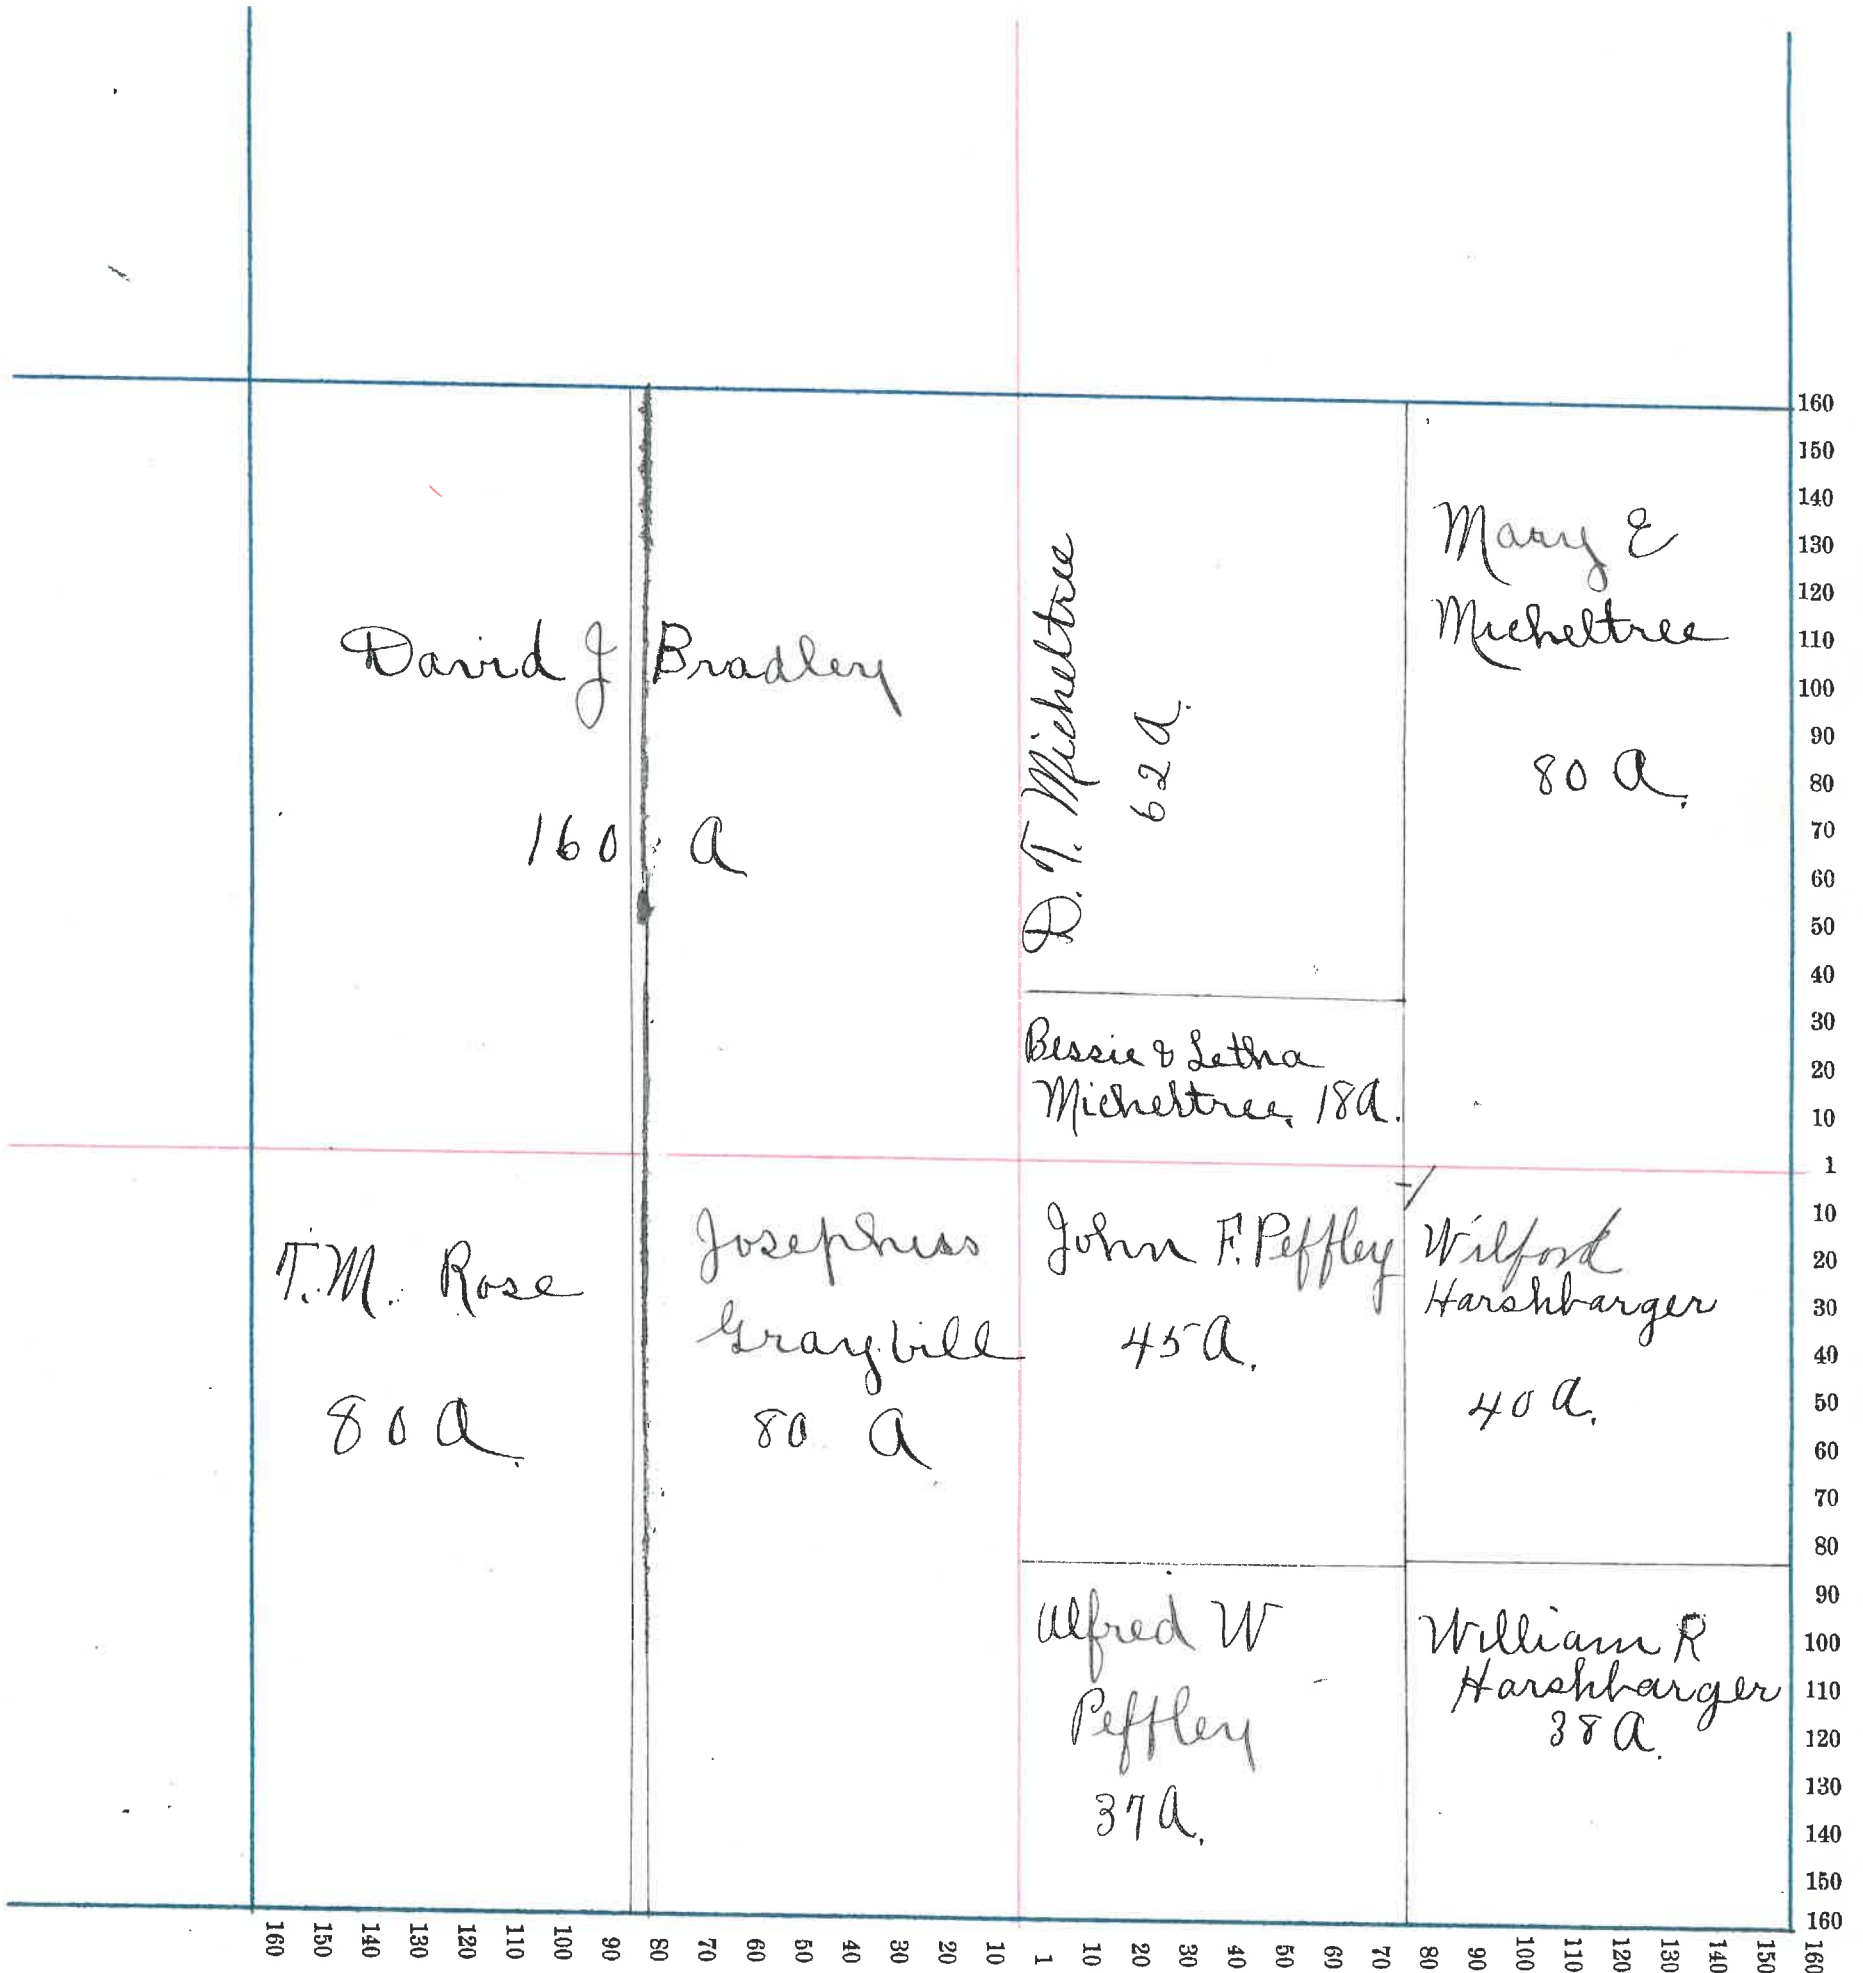 David J Bradley
160 A
D. T. Micheltree
62 A.
Mary E
Micheltree
80 A.
Bessie & Letha
Micheltree 18 A.
T. M. Rose
80 A.
Josephus
Graybill
80 A
John F. Peffley
45 A.
Wilford
Harshbarger
40 A.
Alfred W
Peffley
37 A.
William R
Harshbarger
38 A.
160
150
140
130
120
110
100
90
80
70
60
50
40
30
20
10
1
10
20
30
40
50
60
70
80
90
100
110
120
130
140
150
160
160 150 140 130 120 110 100 90 80 70 60 50 40 30 20 10 1 10 20 30 40 50 60 70 80 90 100 110 120 130 140 150 160